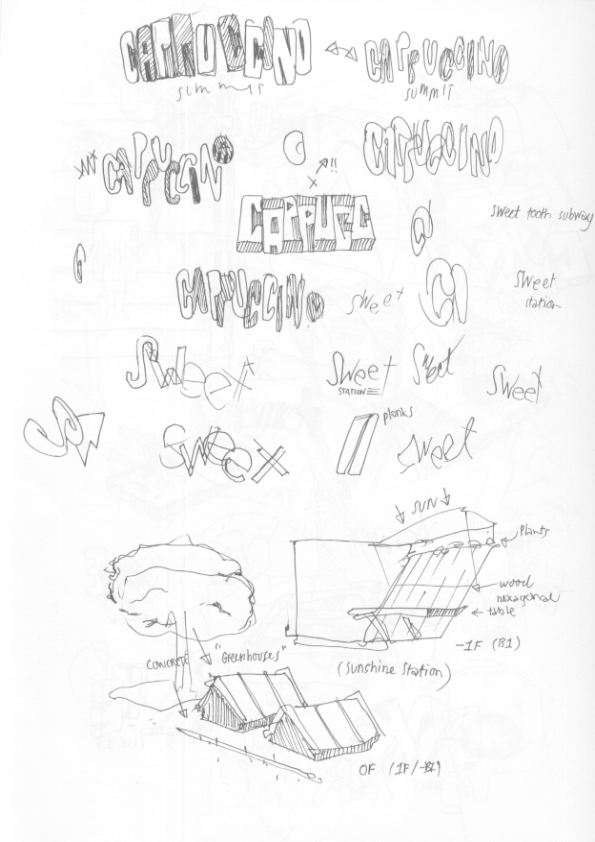 CAPPUCCINO CAPPUCCINO
summit summit
CAPPUCCINO
CAPPUCCINO
!!
x
CAPPUCC
sweet tooth subway
CAPPUCCINO
sweet
Sweet
station
Sweet
Sweet
STATION
Sweet
Sweet
Sweet
planks
sweet
SUN
Plants
wood
hexagonal
table
-1F (B1)
(Sunshine Station)
CONCRETE
"Greenhouses"
0F (1F/-B1)